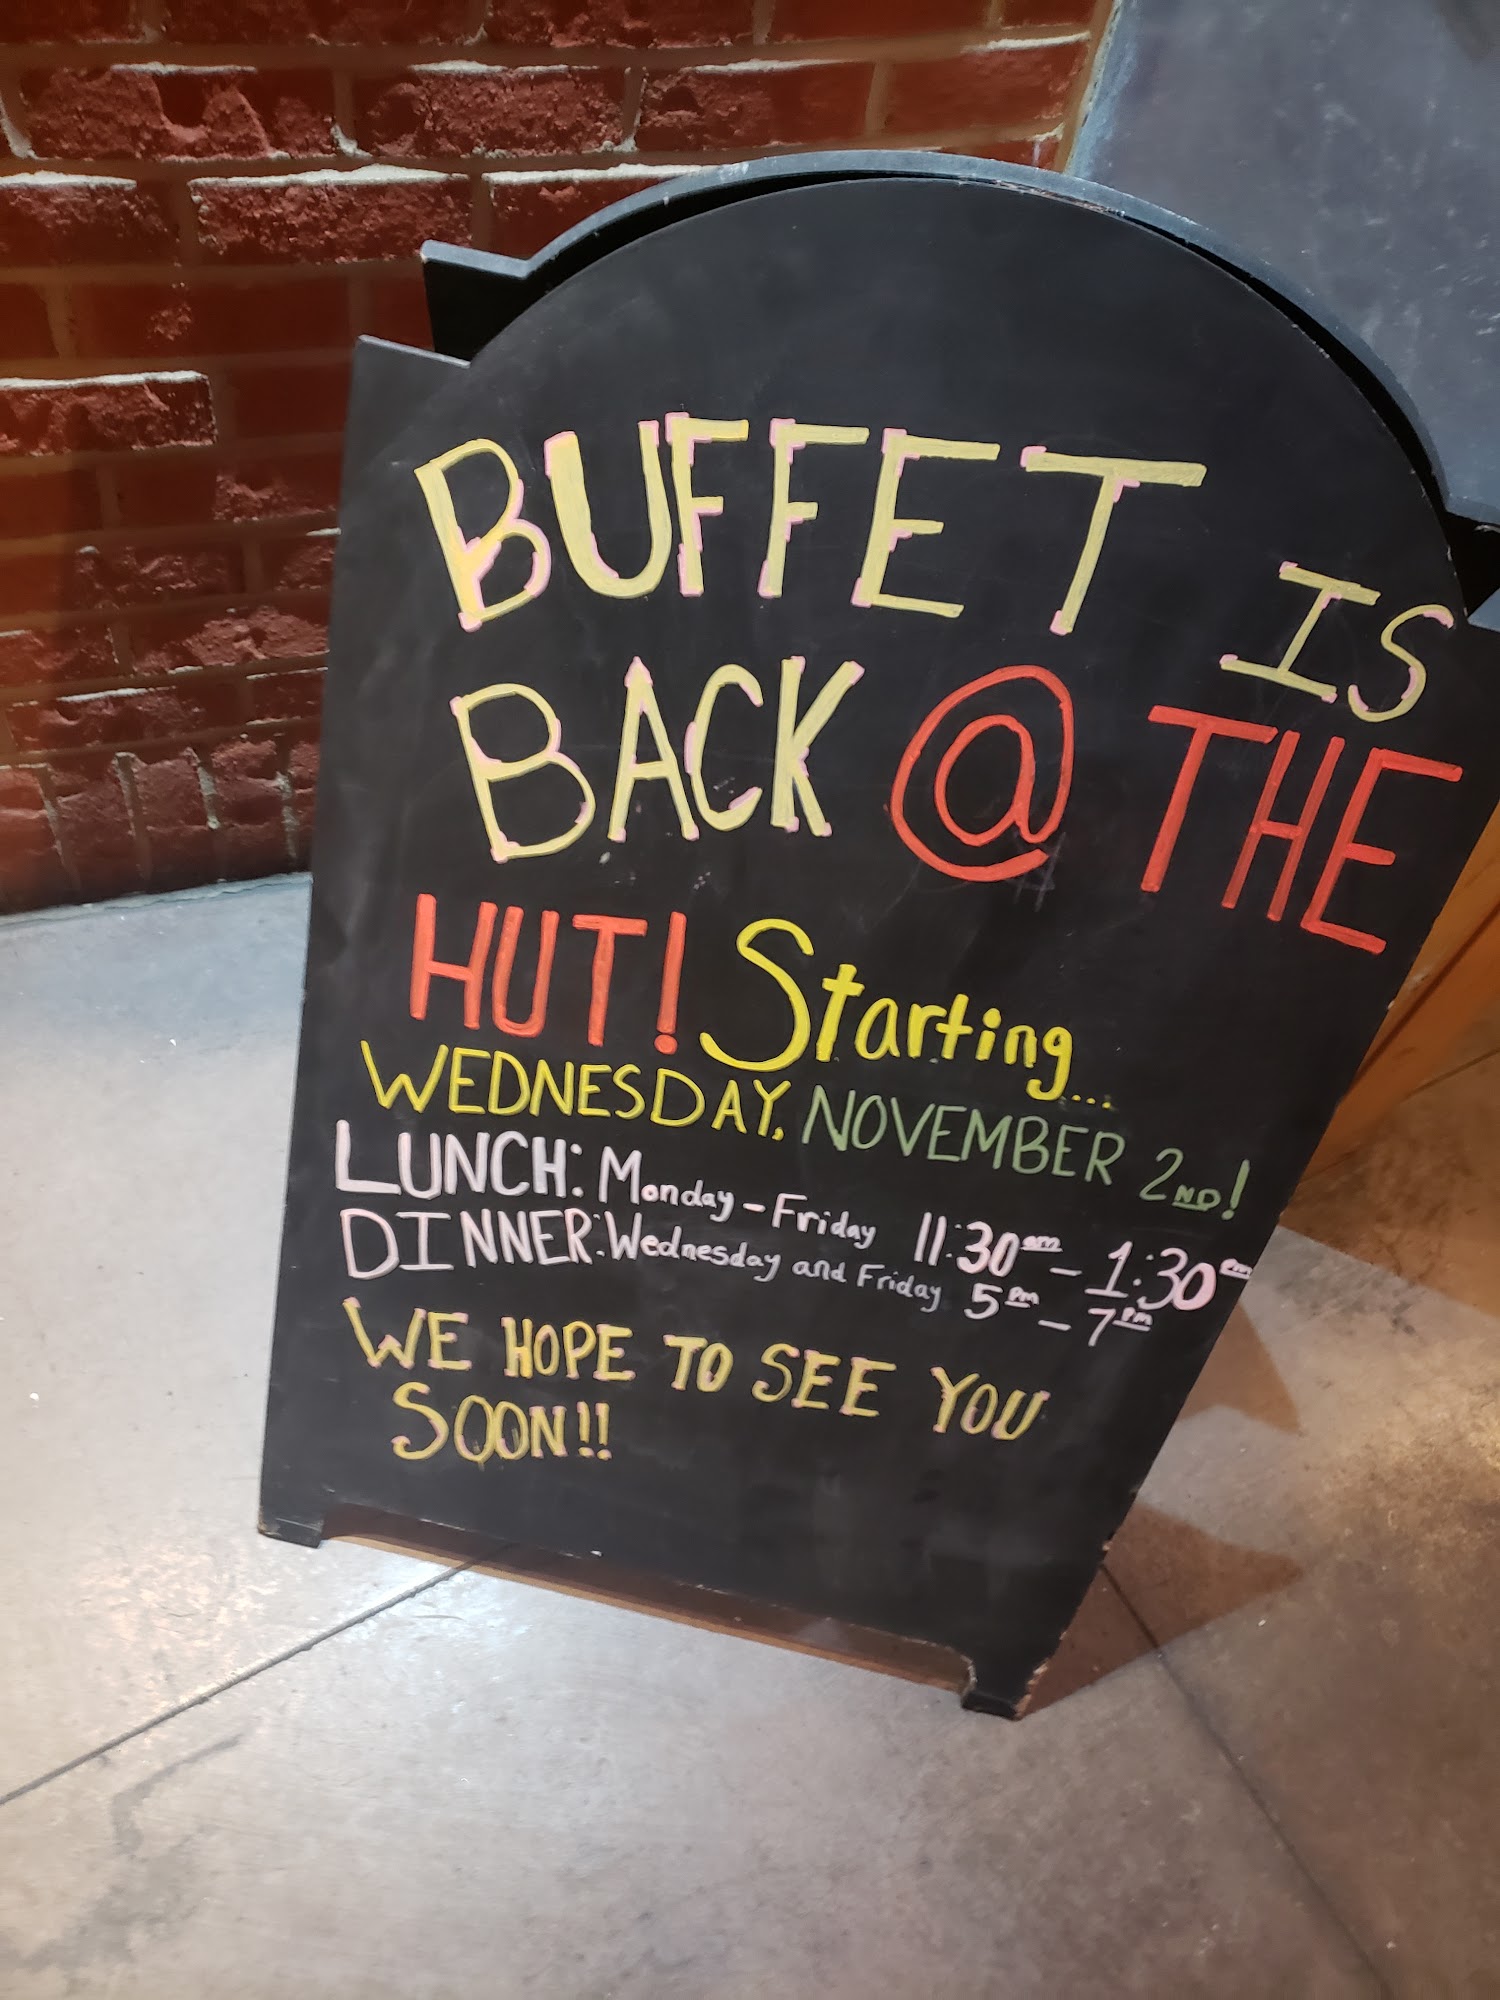 BUFFET IS
BACK @ THE
HUT! Starting...
WEDNESDAY, NOVEMBER 2ND!
LUNCH: Monday - Friday 11:30am - 1:30pm
DINNER: Wednesday and Friday 5pm - 7pm
WE HOPE TO SEE YOU
SOON!!